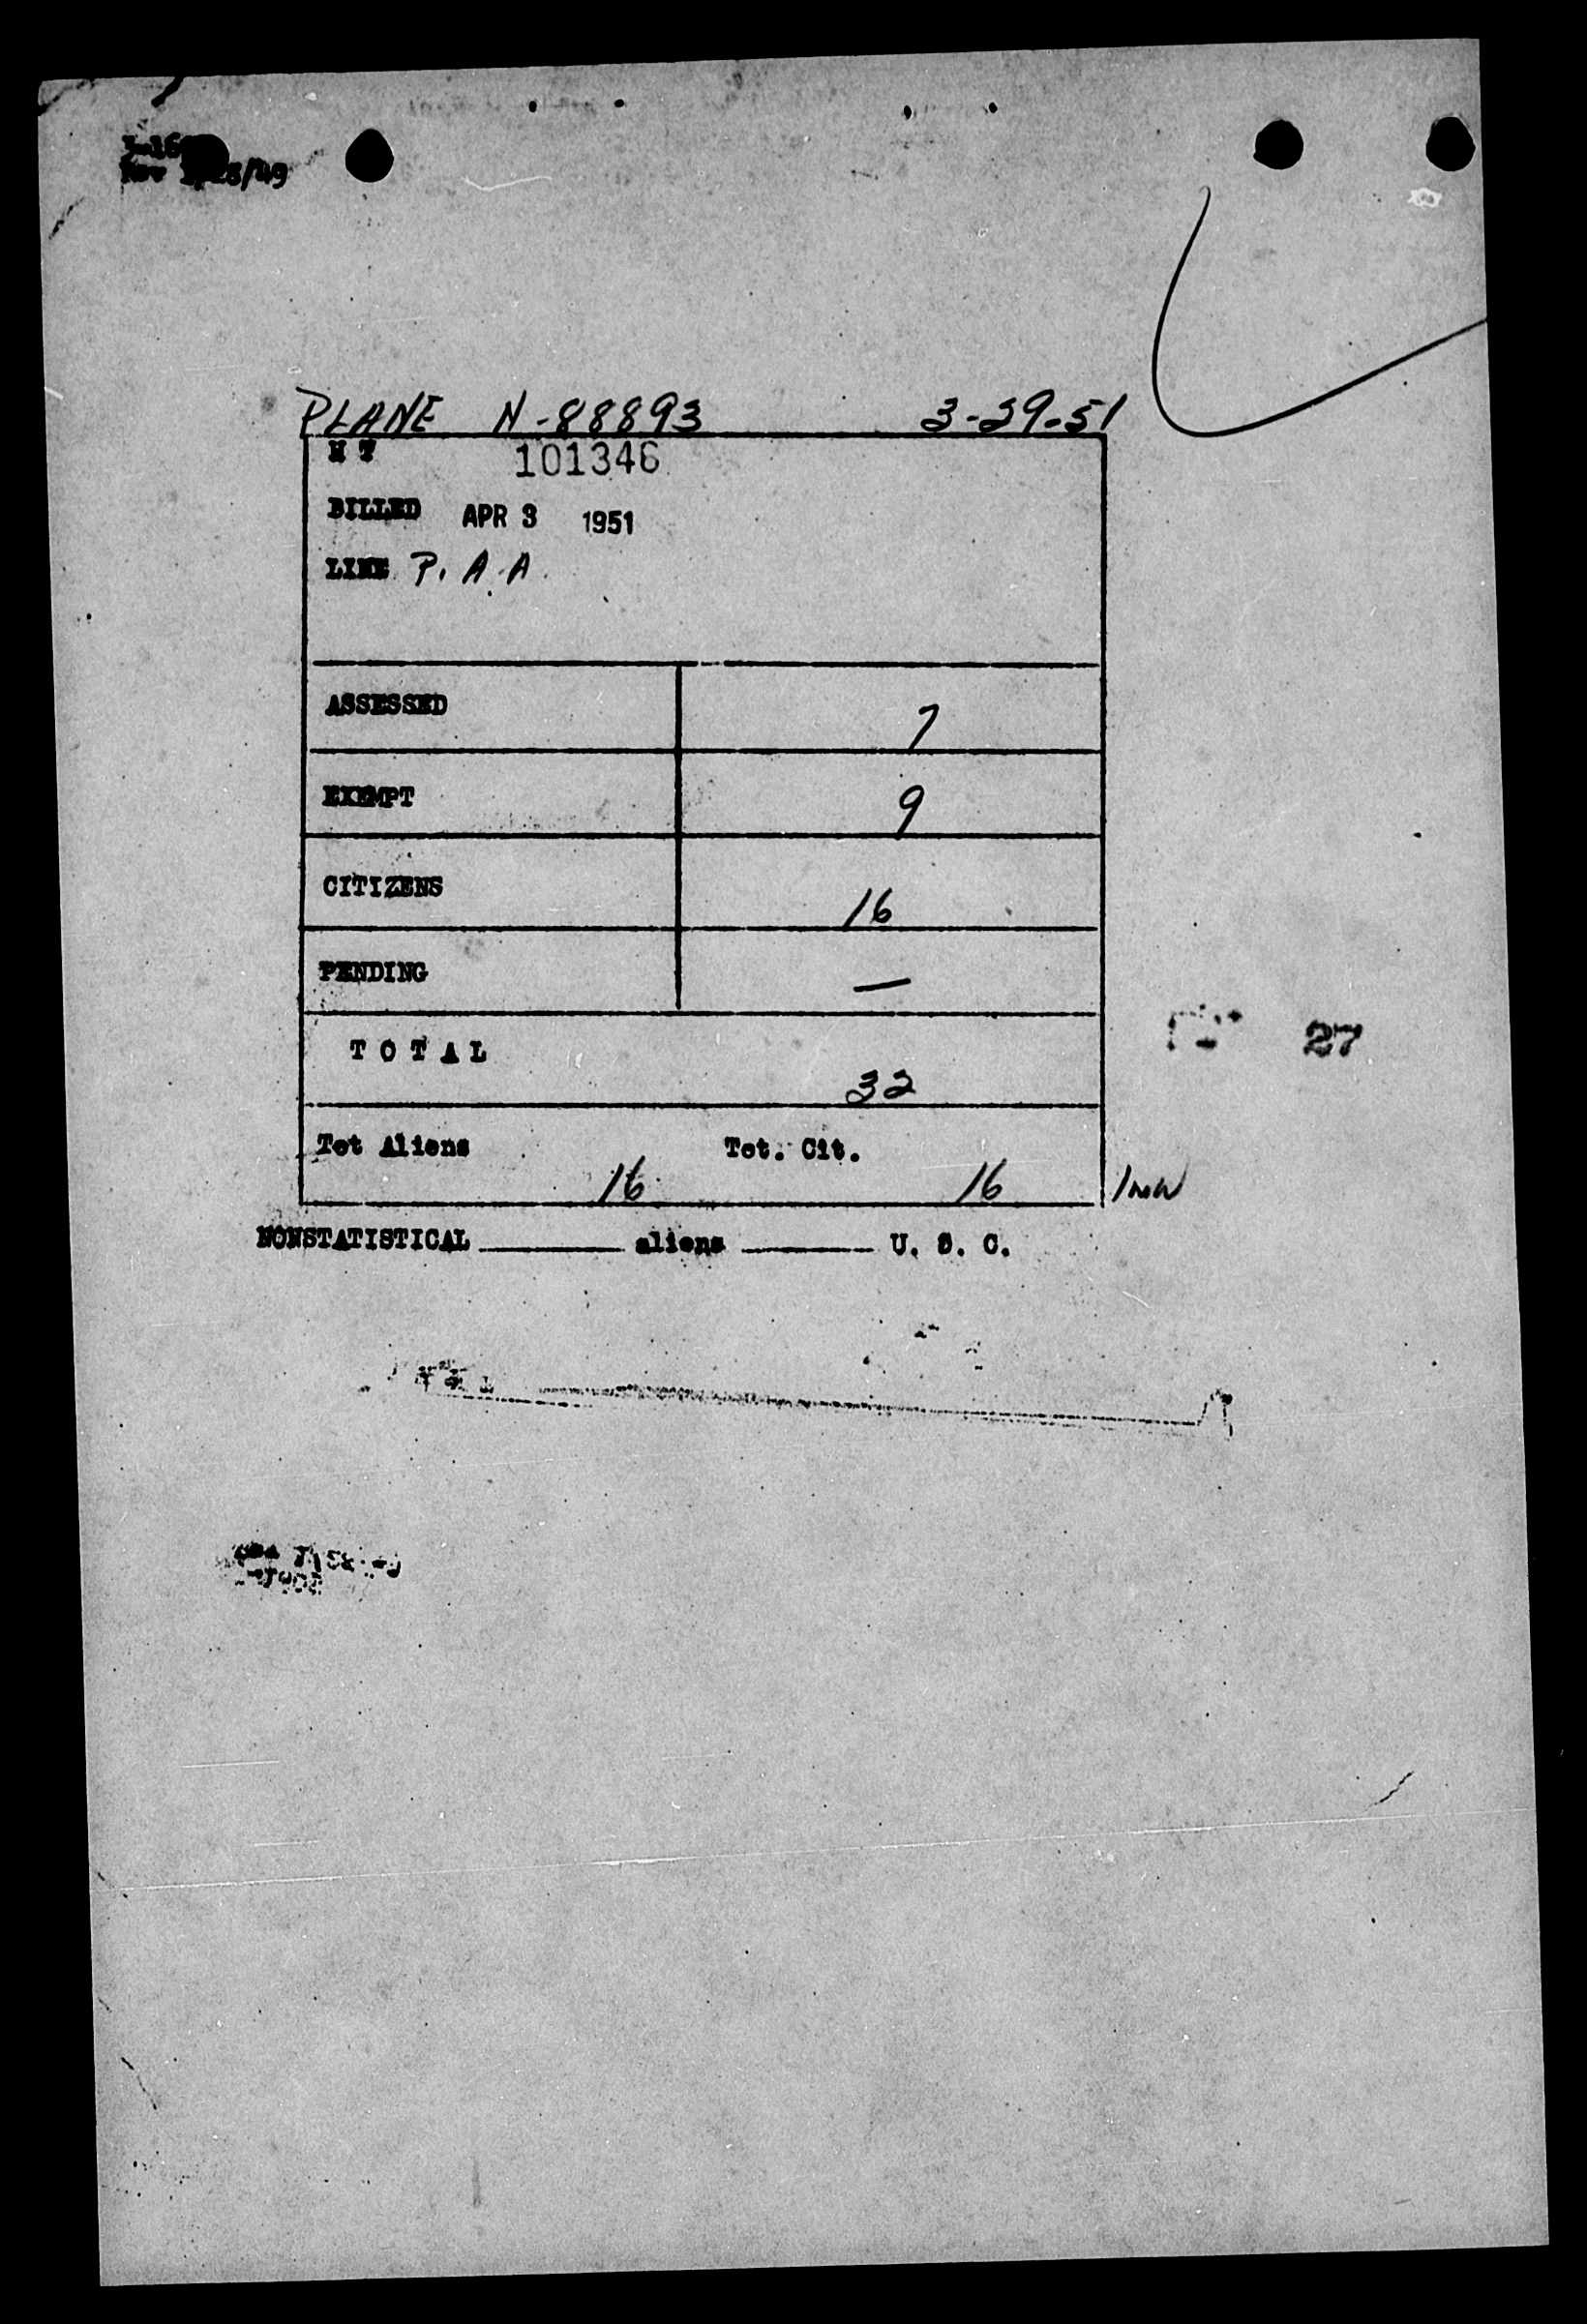 PLANE N-88893 3-29-51
H T 101346
BILLED APR 3 1951
LINE P.A.A.
ASSESSED 7
EXEMPT 9
CITIZENS 16
PENDING —
TOTAL 32
27
Tot Aliens 16 Tot. Cit. 16
NONSTATISTICAL ______ aliens ______ U. S. C.